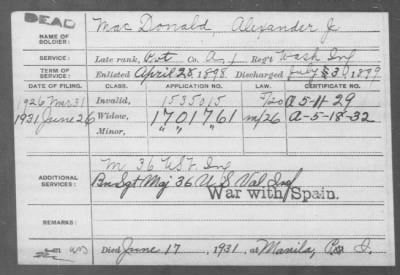 DEAD
NAME OF SOLDIER: Mac Donald, Alexander J
SERVICE: Late rank, Pvt Co. A, 1 Reg't Wash Inf
TERM OF SERVICE: Enlisted April 28, 1898 Discharged July 30, 1899
DATE OF FILING. CLASS. APPLICATION NO. LAW. CERTIFICATE NO.
1926 Mar 31 Invalid, 1535015 a 5-11-29
1931 June 26 Widow, 1701761 m/26 a-5-18-32
Minor, " " "
ADDITIONAL SERVICES: M 36 USV Inf
Bn Sgt Maj 36 U S Vol Inf
War with Spain.
REMARKS:
Died June 17, 1931, at Manila, P. I.